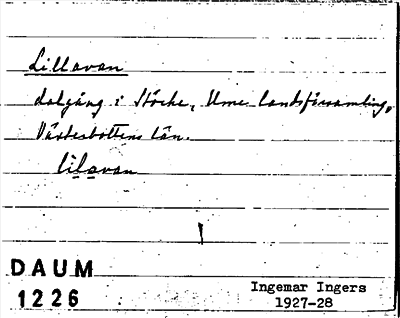 Lillavan
dalgång i Stöcke, Ume landsförsamling,
Västerbottens län.
lilavan
DAUM
1226
Ingemar Ingers
1927-28